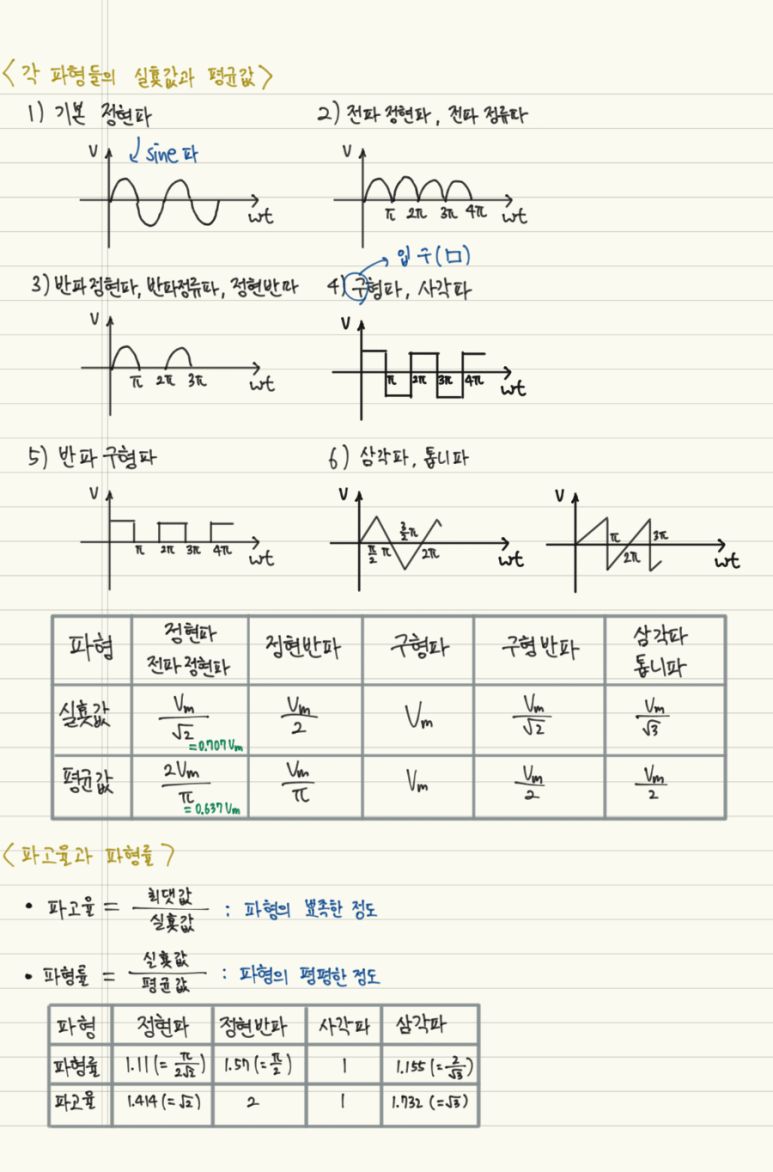 <각 파형들의 실횻값과 평균값>
1) 기본 정현파
2) 전파 정현파, 전파 정류파
V
sine 파
wt
V
π 2π 3π 4π
wt
3) 반파정현파, 반파정류파, 정현반파
4) 구형파, 사각파
입 구(口)
V
π 2π 3π
wt
V
π 2π 3π 4π
wt
5) 반파 구형파
6) 삼각파, 톱니파
V
π 2π 3π 4π
wt
V
π/2 π 3/2π 2π
wt
V
π 2π 3π
wt
파형 정현파 전파 정현파 정현반파 구형파 구형반파 삼각파 톱니파
실횻값 Vm/√2 =0.707Vm Vm/2 Vm Vm/√2 Vm/√3
평균값 2Vm/π =0.637Vm Vm/π Vm Vm/2 Vm/2
<파고율과 파형률>
• 파고율 = 최댓값/실횻값 : 파형의 뾰족한 정도
• 파형률 = 실횻값/평균값 : 파형의 평평한 정도
파형 정현파 정현반파 사각파 삼각파
파형률 1.11(=π/2√2) 1.57(=π/2) 1 1.155(=2/√3)
파고율 1.414(=√2) 2 1 1.732(=√3)